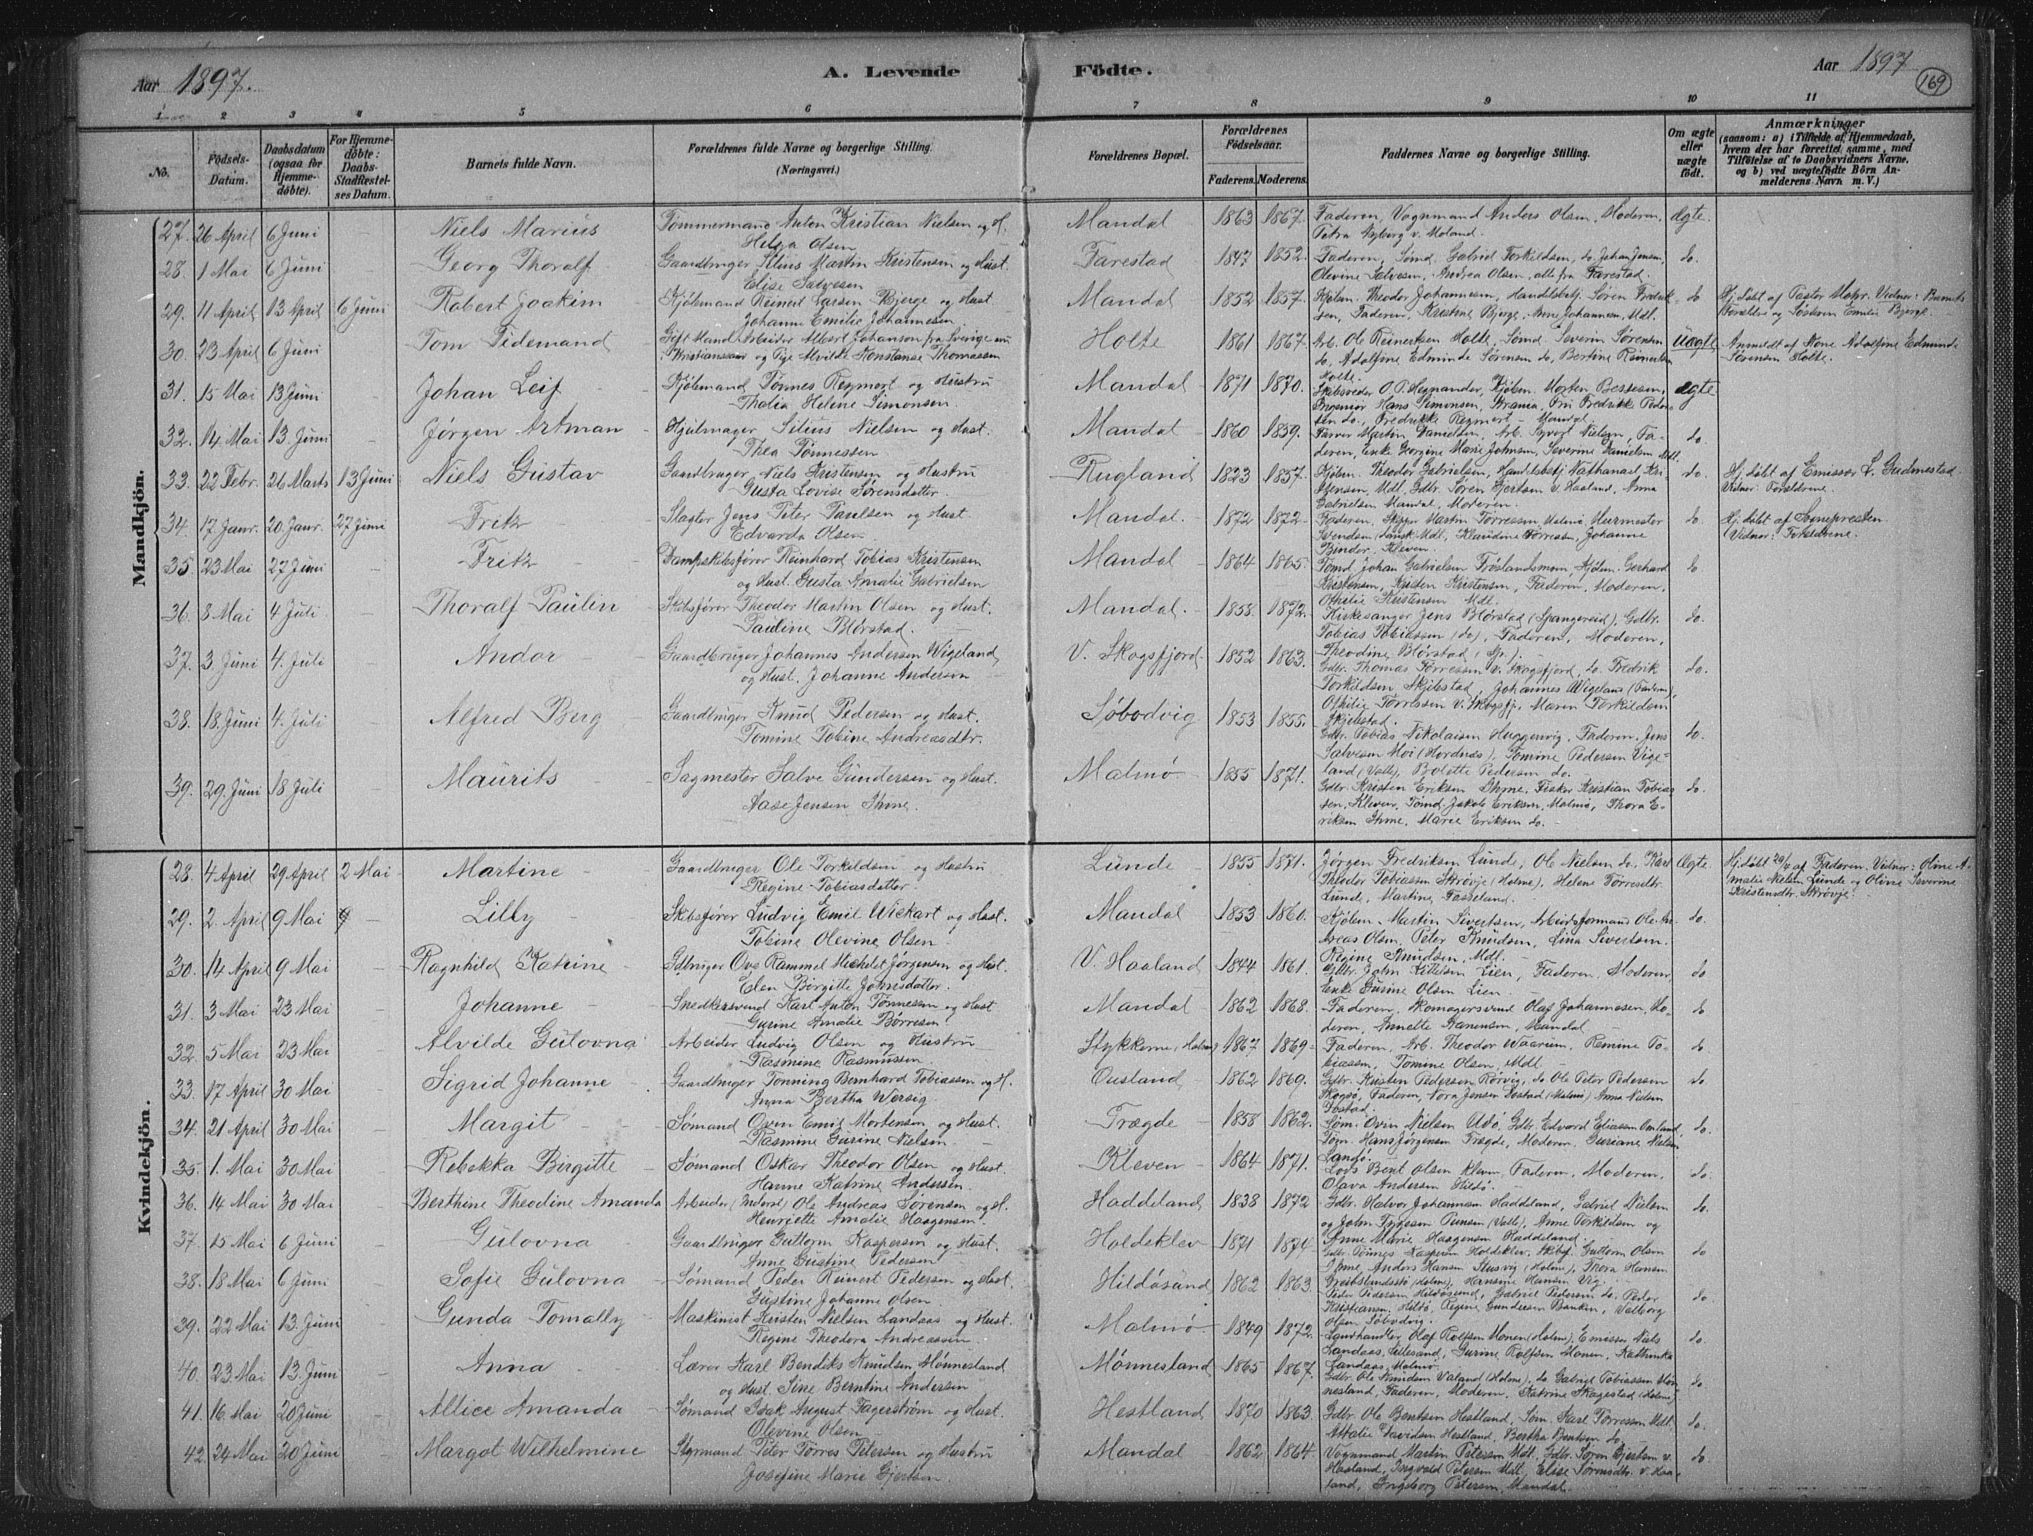 Aar 1897.
A. Levende
Födte.
Aar 1897
169
1 2 3 4 5 6 7 8 9 10 11
No.
Födsels-Datum.
Daabsdatum (ogsaa för Hjemmedöbte).
For Hjemmedöbte: Daabs-Stadfæstelses Datum.
Barnets fulde Navn.
Forældrenes fulde Navne og borgerlige Stilling.
(Næringsvei.)
Forældrenes Bopæl.
Forældrenes Födselsaar.
Faderens. Moderens.
Faddernes Navne og borgerlige Stilling.
Om ægte eller uægte födt.
Anmærkninger
(saasom: a) i Tilfælde af Hjemmedaab, hvem der har forrettet samme, med Tilföielse af to Daabsvidners Navne, og b) ved uægtefödte Börn Anmelderens Navn m. V.)
Mandkjön.
27. 26 April 6 Juni - Niels Marius Tømmermand Anton Kristian Nielsen og H. Helga Olsen Mandal 1863 1867. Faderen, Vognmand Anders Olsen, Moderen, Petra Nyberg v. Moland. Ægte.
28. 1 Mai 6 Juni - Georg Thoralf Gaardbruger Silius Martin Kristensen og Hust. Elise Salvesen Farestad 1847 1852. Faderen, Sømd. Gabriel Torkildsen, do. Johan Jensen, Olevine Salvesen, Andrea Olsen, alle fra Farestad. do.
29. 11 April 13 April 6 Juni Robert Joakim Kjølemand Reinert Larsen Bjerge og Hust. Johanne Emilie Johannesen Mandal 1852 1857. Theodor Johannesen, Handelsbetj. Søren Fredriksen, Faderen, Kristine Bjerge, Anne Johannesen, Mdl. do Hj. døbt af Pastor Mohr. Vidner: Barnets Forældre og Søsteren Emilie Bjerge.
30. 23 April 6 Juni Tom Tidemand Gift Mand Arbeider Albert Johanson fra Sverige nu i Kristianssand og Pige Alvilde Konstanse Thomassen Holte 1861 1867. Arb. O. Reinertsen Holte, Sømd. Severin Sørensen do, Adolfine Edminde Sørensen do, Bertine Reinertsen Holte. Uægte Anmeldt af Kone Adolfine Edminde Sørensen Holte.
31. 15 Mai 13 Juni Johan Leif - Kjølemand Tønnes Reymert og Hustru Thalia Helene Simonsen. Mandal 1871 1870. Skibsreder O. P. Hegnander, Kjøbm. Morten Bessesen, Ingeniør Hans Simonsen, Fru Fredrikke Pedersen do, Fredrikke Reymert, Mandal. Ægte
32. 14 Mai 13. Juni - Jørgen Artman - Hjulmager Silius Nielsen og Hust. Thea Tønnessen Mandal 1860 1859. Farver Martin Danielsen, Arb. Syvert Nielsen, Faderen, Enke Georgine Marie Johnsen, Severine Danielsen Mdl. do.
33. 22 Febr. 26 Marts 13 Juni Niels Gustav Gaardbruger Niels Kristensen og Hustru Gusta Lovise Sørensdatter Rugland 1823 1857. Kjøbm. Theodor Gabrielsen, Handelsbetj. Nathanael Kristensen, Mdl. Gdbr. Søren Gjertsen v. Haaland, Anna Gabrielsen Mandal, Moderen. do. Hj. døbt af Emissær L. Gudmestad. Vidner: Forældrene.
34. 17 Janr. 20 Janr. 27 Juni Fritz Slagter Jens Peter Paulsen og Hust. Edvarda Olsen Mandal. 1872 1872 Faderen, Skipper Martin Tørressen Malmø, Murmester Svendsen, Mdl., Klavidine Tørressen, Johanne Kleven. do. Hj. døbt af Sognepresten. Vidner: Forældrene.
35. 23 Mai 27 Juni Fritz Dampskibsfører Reinhard Tobias Kristensen og Hust. Gusta Amalie Gabrielsen Mandal 1864 1865 Tømd. Johan Gabrielsen Frøslandsmoen, Kjøbm. Gerhard Kristensen, Kristen Kristensen, Faderen, Moderen, Othilie Kristensen Mdl. do
36. 8 Mai 4 Juli Thoralf Paulin Skibsfører Theodor Martin Olsen og Hust. Pauline Blørstad. Mandal. 1858. 1872. Kirkesanger Jens Blørstad (Spangereid), Gdbr. Tobias Tobiassen (do), Faderen, Moderen, Theodine Blørstad (Sp.). do.
37. 3. Juni 4. Juli - Andor Gaardbruger Johannes Andersen Wigeland og Hust. Johanne Andersen V. Skogsfjord 1852 1863. Gdbr. Thomas Tørressen v. Skogsfjord, do Fredrik Torkildsen Skjebstad, Johannes Wigeland (Faderen), Othilie Tørressen v. Skogsfj., Maren Torkildsen Skjebstad. do.
38. 18. Juni 4. Juli Alfred Berg Gaardbruger Knud Pedersen og Hust. Tomine Tobine Andreasdtr. Søbodvig 1853 1855. Gdbr. Tobias Nikolaisen Huggenvig, Faderen, Jens Salvesen Moi (Hordnæs), Tomine Pedersen Vigeland (Valle), Bolette Pedersen do. do.
39. 29. Juni 18 Juli - Maurits Sagmester Salve Gundersen og Hust. Aase Jensen Ihme. Malmø 1855 1871. Gdbr. Kristen Eriksen Ihme, Fisker Kristian Tobiassen, Kleven, Tømd. Jakob Eriksen, Malmø, Thora Eriksen Ihme, Marie Eriksen do. do.
Kvindekjön.
28. 4 April 29 April 2 Mai Martine Gaardbruger Ole Torkildsen og Hustru Regine Tobiasdatter. Lunde 1855 1871. Jørgen Fredriksen Lunde, Ole Nielsen do. Karl Theodor Tobiassen Skrøvje (Holme), Helene Tørresdtr. Lunde, Martine Fasseland. Ægte. Hj. døbt 29/4 af Faderen. Vidner: Oline Amalie Nielsen Lunde og Olive Severine Kristensdtr. Skrøvje.
29. 2. April 9 Mai Lilly Skibsfører Ludvig Emil Wickart og Hust. Tobine Olevine Olsen. Mandal 1853 1860. Kjøbm. Martin Sivertsen, Arbeidsformand Ole Andreas Olsen, Peter Knudsen, Lina Sivertsen, Regine Knudsen, Mdl. do.
30. 14 April 9 Mai Ragnhild Katrine Gdbruger Ove Rammel Michelet Jørgensen og Hust. Elen Birgitte Johnsdatter. V. Haaland 1844 1861. Gdbr. John Kittelsen Lien, Faderen, Moderen, Enke Gurine Olsen Lien. do
31. 3 Mai 23 Mai Johanne Snedkersvend Karl Anton Tønnessen og Hust. Gurine Amalie Børresen Mandal 1862 1868. Faderen, Skomagersvend Olaf Johannesen, Moderen, Annette Hanensen, Mandal. do
32. 5 Mai 23 Mai Alvilde Gulovna Arbeider Ludvig Olsen og Hustru Rasmine Rasmussen Stykkerne (Holme) 1867 1869 Faderen, Arb. Theodor Waarum, Remine Tobiassen, Tomine Olsen, Mdl. do
33. 17 April 30 Mai Sigrid Johanne Gaardbruger Tonning Bernhard Tobiassen og H. Anna Bertha Wersig Ousland 1862 1869. Gdbr. Kristen Pedersen Rørvig, do Ole Peter Pedersen Skogsø, Faderen, Nora Jensen Tostad (Malmø) Anna Nielsen Tostad. do.
34. 21 April 30 Mai Margit Sømand Ovin Emil Mortensen og Hust. Rasmine Gusine Nielsen Trægde 1858 1862. Søm. Ovin Nielsen Udø, Gdbr. Edvard Eliassen Ousland, Tøm. Hans Jørgensen Trægde, Moderen, Guriane Nielsen Landø. do.
35. 1. Mai 30 Mai Rebekka Birgitte Sømand Oskar Theodor Olsen og Hust. Hanne Katrine Andersen. Kleven 1864 1871. Lods Bent Olsen Kleven, Faderen, Moderen, Olava Andersen Hildø. do.
36. 14 Mai 30 Mai Berthine Theodine Amanda Arbeider (Inderst) Ole Andreas Sørensen og H. Henriette Amalie Haagensen. Haddeland 1838 1872 Gdbr. Halvor Johannesen Haddeland, Gabriel Nielsen og John Tygesen (Valle), Anne Torkildsen og Anne Marie Haagensen Haddeland. do.
37. 15 Mai 6 Juni Gulovna Gaardbruger Guttorm Kaspersen og Hust. Anne Gustine Pedersen Holdeklev 1871 1874 Gdbr. Tønnes Kaspersen Holdeklev, Skibsf. Guttorm Olsen Ihme, Anders Hansen Stusvig (Holme), Thora Hansen (Holme), Hansine Hansen Vig. do
38. 18 Mai 6 Juni Sofie Gulovna Sømand Peder Reinert Pedersen og Hust. Gustine Johanne Olsen Hildøsund 1862 1863 Peder Pedersen Hildøsund, Gabriel Pedersen do. Peder Kristiansen, Hildø, Regine Gundersen Banken, Valborg Olsen Søbodvig. do.
39. 22 Mai 13. Juni Gunda Tomally Maskinist Kristen Nielsen Landaas og Hust. Regine Theodora Andreassen Malmø 1849 1872. Landhandler Olaf Rolfsen Monen (Holme), Emissær Niels Landaas, Lillesand, Gurine Rolfsen Monen, Kathinka Landaas, Malmø. do.
40. 23 Mai 13. Juni Anna Lærer Karl Bendiks Knudsen Mønnesland og Hust. Sine Berntine Andersen Mønnesland 1865 1867. Gdbr. Ole Knudsen Valand (Holme), do Gabriel Tobiassen Mønnesland, Faderen, Moderen, Katrine Skagestad (Holme). do
41. 16 Mai 20 Juni Allice Amanda Sømand Isak August Fagerstrøm og Hust. Olevine Olsen Hestland 1870 1863 Gdbr. Ole Bentsen Hestland, Søm. Karl Tørressen Mdl. Attalie Davidsen Hestland, Bertha Bentsen do. do.
42. 24 Mai 20 Juni Margot Wilhelmine Styrmand Peter Tørres Petersen og Hustru Josefine Marie Gjertsen. Mandal 1862 1864. Vognmand Martin Petersen Mdl. Gdbr. Søren Gjertsen v. Haaland, Ingvald Petersen Mdl, Else Sørensdtr. v. Haaland, Ingeborg Petersen, Mandal. do.